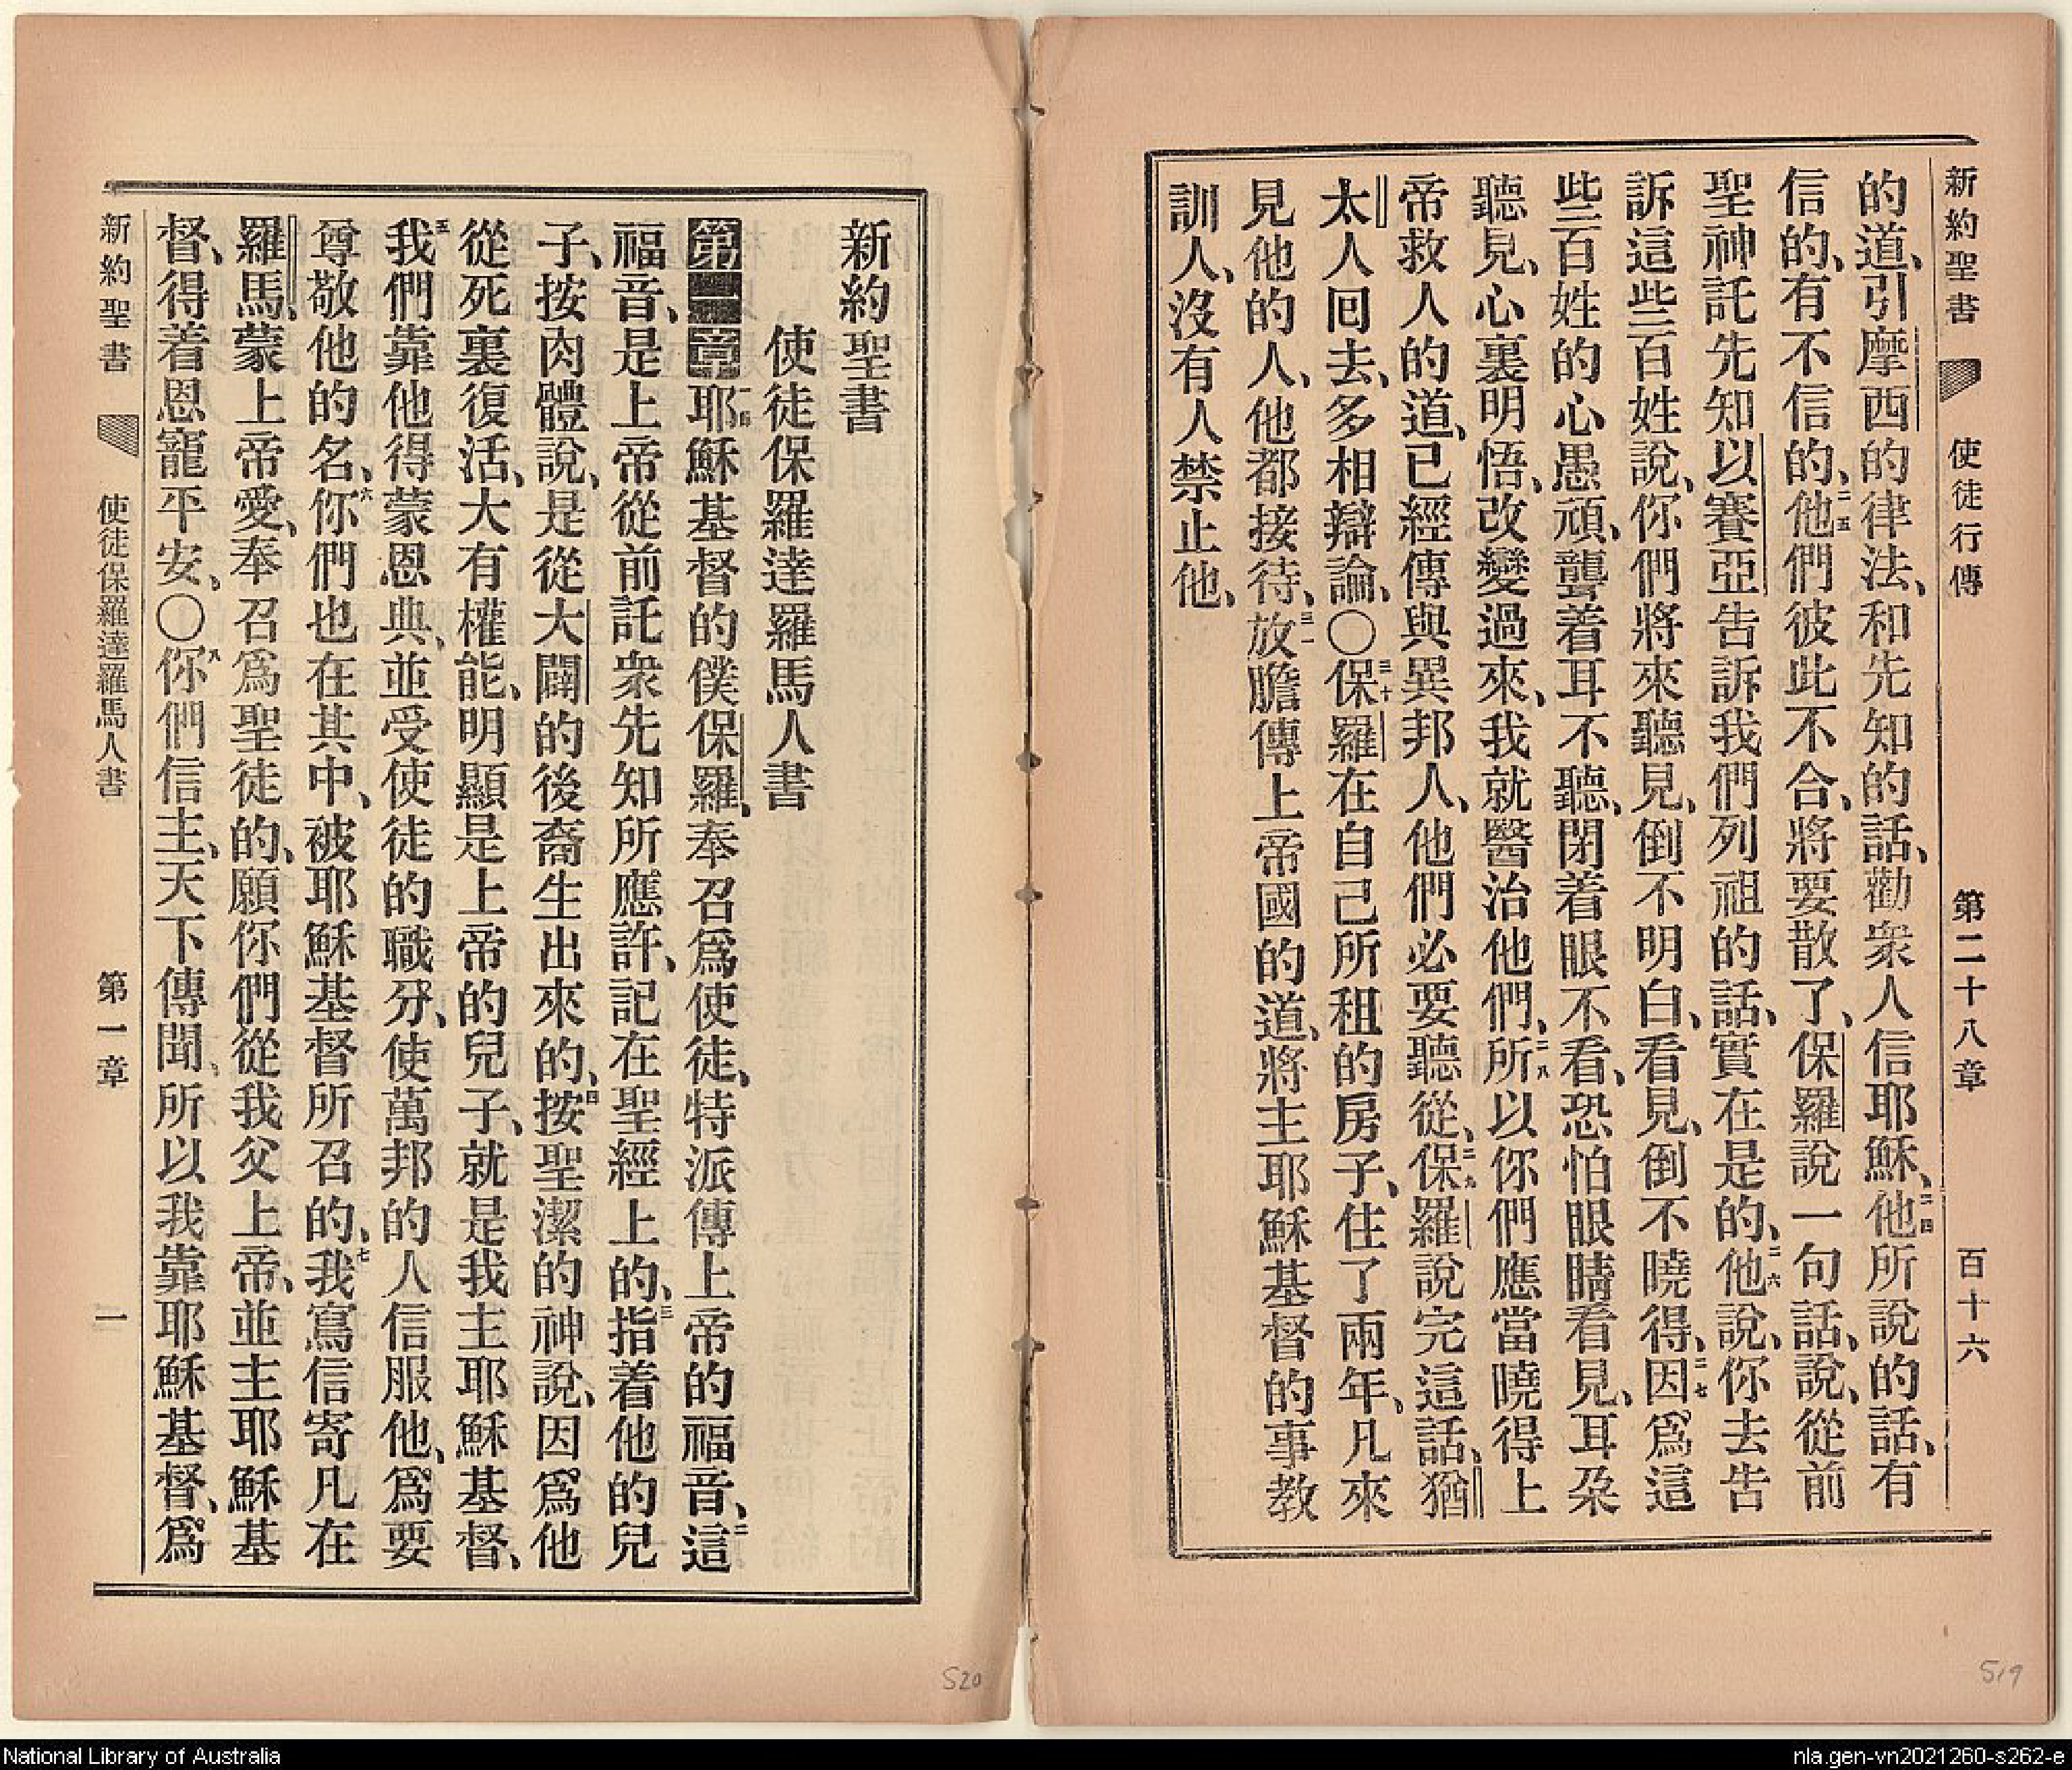 新約聖書 使徒行傳 第二十八章 百十六
的道、引摩西的律法、和先知的話、勸衆人信耶穌、二四他所說的話、有
信的、有不信的、二五他們彼此不合、將要散了、保羅說一句話、說、從前
聖神託先知以賽亞告訴我們列祖的話、實在是的、二六他說、你去告
訴這些百姓說、你們將來聽見、倒不明白、看見、倒不曉得、二七因爲這
些百姓的心愚頑、聾着耳不聽、閉着眼不看、恐怕眼睛看見、耳朶
聽見、心裏明悟、改變過來、我就醫治他們、二八所以你們應當曉得上
帝救人的道、已經傳與異邦人、他們必要聽從、二九保羅說完這話、猶
太人回去、多相辯論、〇三十保羅在自己所租的房子、住了兩年、凡來
見他的人、他都接待、三一放膽傳上帝國的道、將主耶穌基督的事教
訓人、沒有人禁止他、
519
新約聖書
使徒保羅達羅馬人書
第一章一耶穌基督的僕保羅、奉召爲使徒、特派傳上帝的福音、二這
福音、是上帝從前託衆先知所應許、記在聖經上的、三指着他的兒
子、按肉體說、是從大闢的後裔生出來的、四按聖潔的神說、因爲他
從死裏復活、大有權能、明顯是上帝的兒子、就是我主耶穌基督、
五我們靠他得蒙恩典、並受使徒的職分、使萬邦的人信服他、爲要
尊敬他的名、六你們也在其中、被耶穌基督所召的、七我寫信寄凡在
羅馬、蒙上帝愛、奉召爲聖徒的、願你們從我父上帝、並主耶穌基
督、得着恩寵平安、〇八你們信主、天下傳聞、所以我靠耶穌基督、爲
新約聖書 使徒保羅達羅馬人書 第一章 一
520
National Library of Australia
nla.gen-vn2021260-s262-e